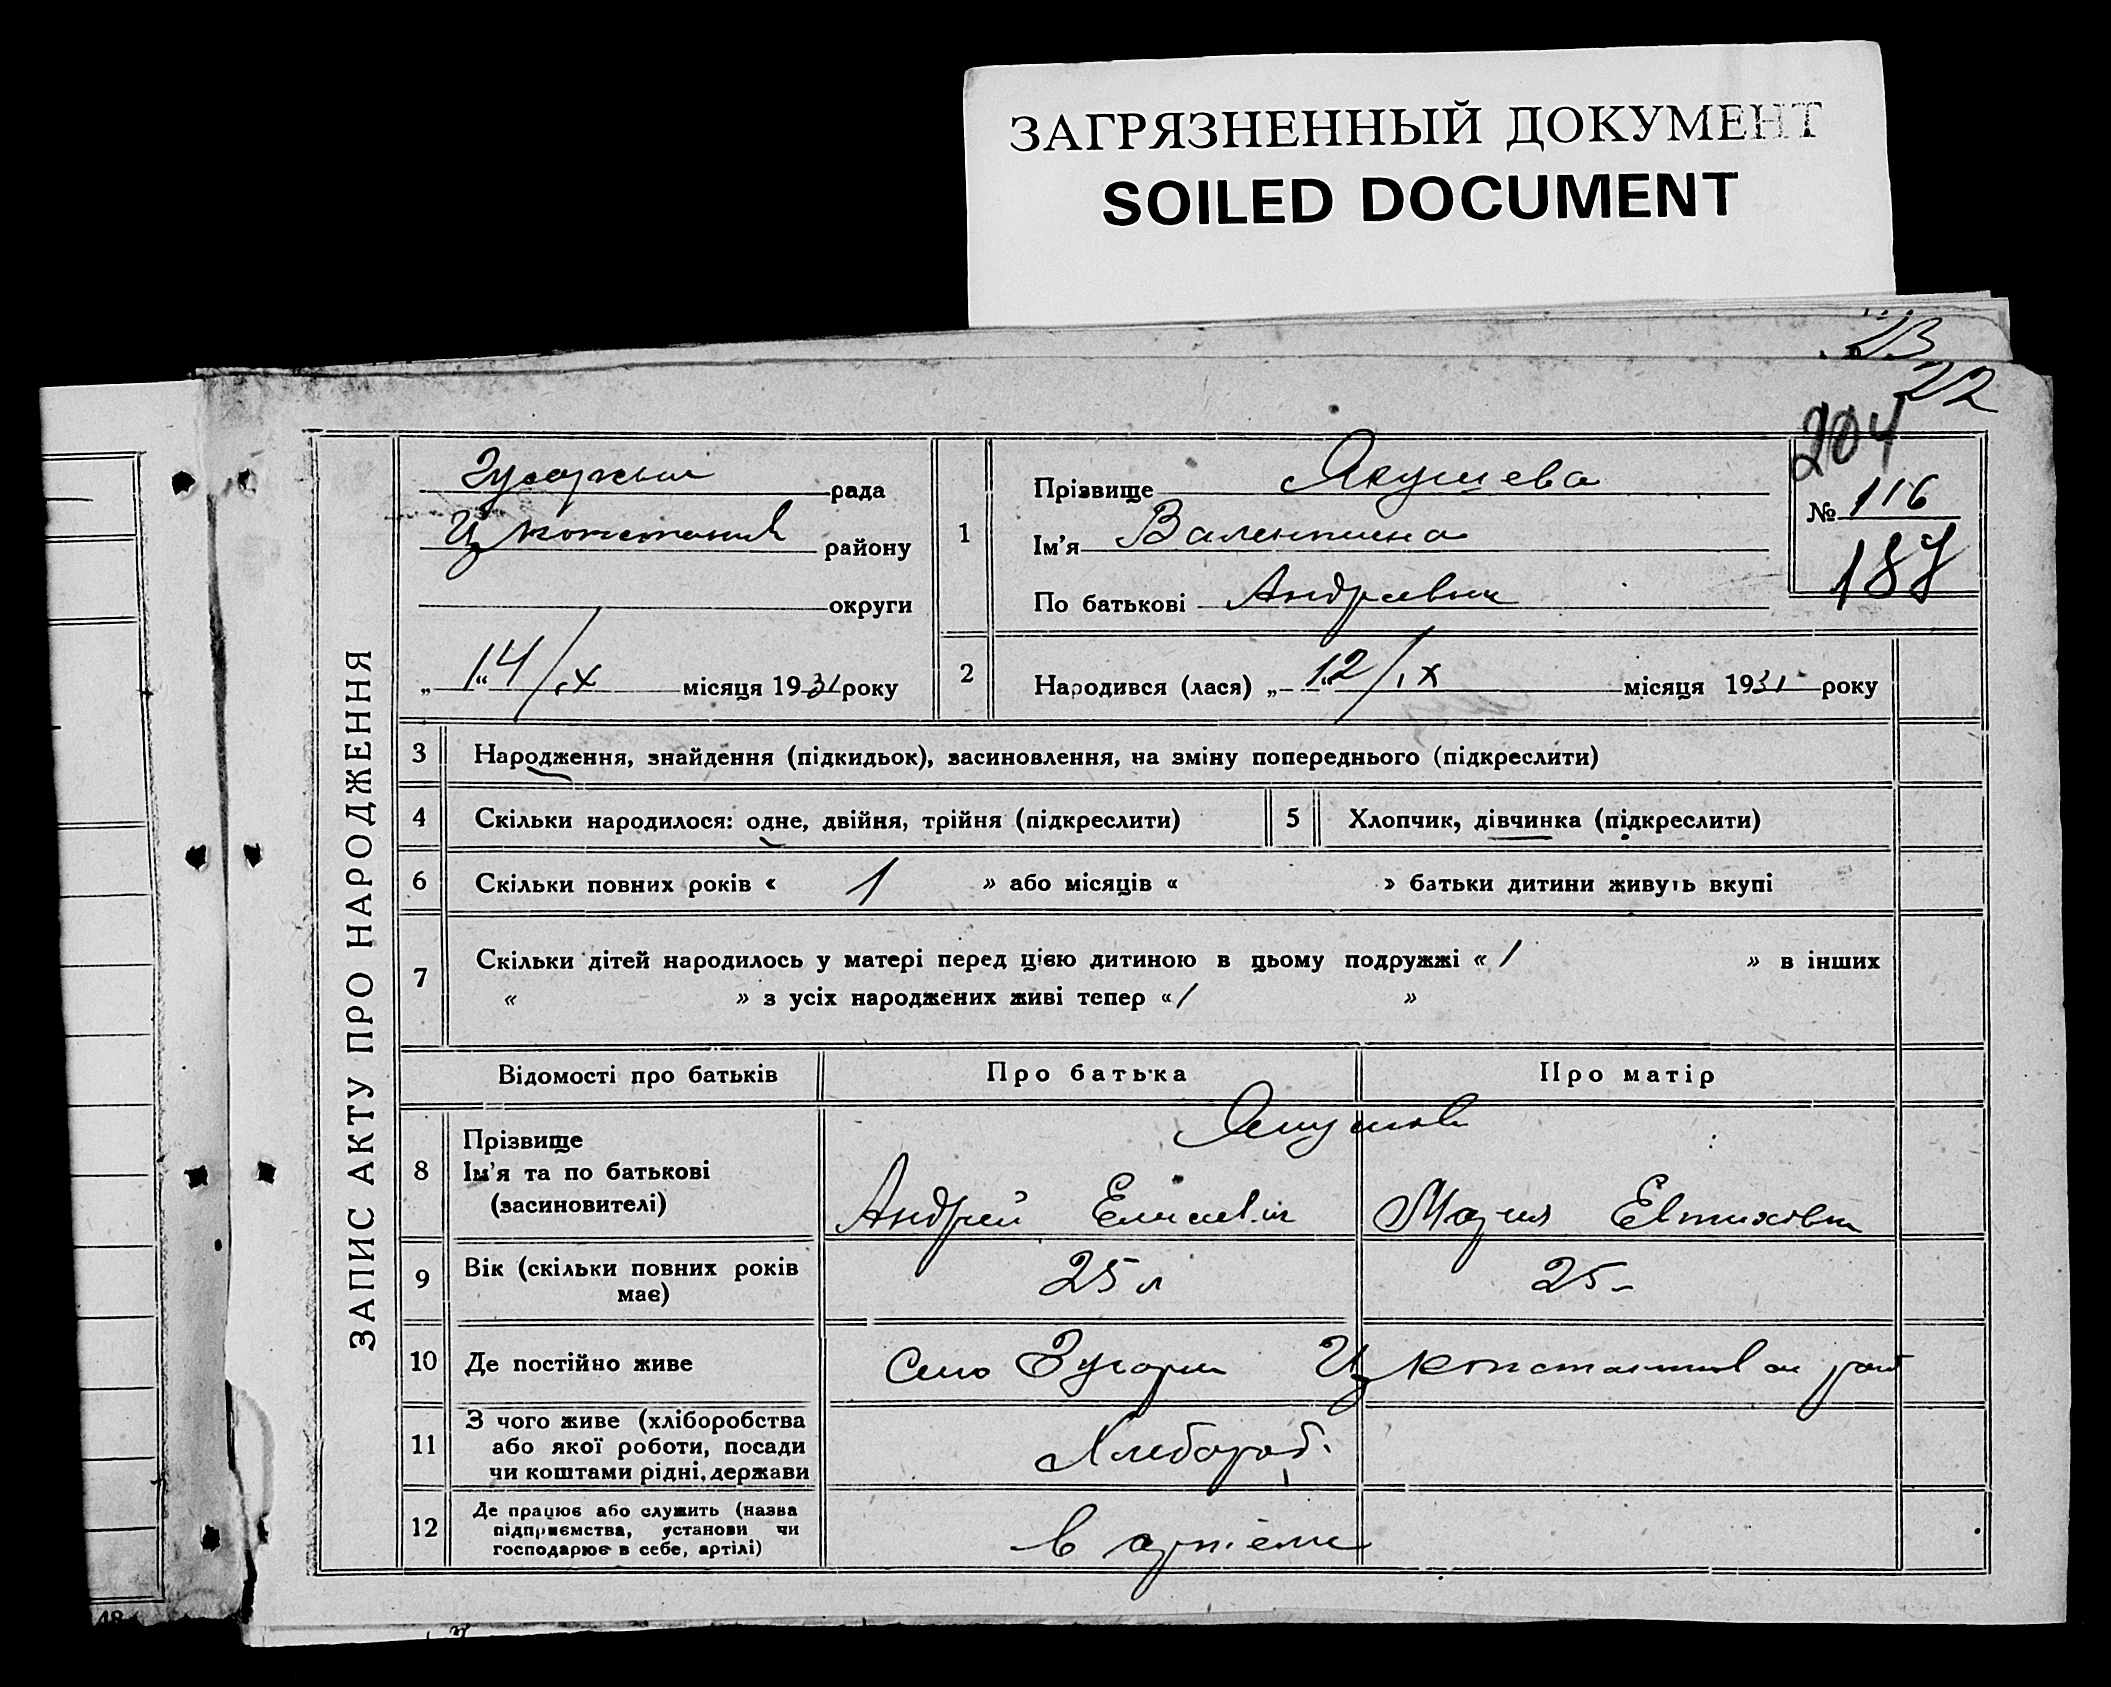 ЗАГРЯЗНЕННЫЙ ДОКУМЕНТ
SOILED DOCUMENT
22
204
ЗАПИС АКТУ ПРО НАРОДЖЕННЯ
рада
району
округи
„ 14 “ / IX місяця 1931 року
1
Прізвище Якушева
Ім'я Валентина
По батькові Андреевна
№ 116
187
2
Народився (лася) „ 12 “ / IX місяця 1931 року
3 Народження, знайдення (підкидьок), засиновлення, на зміну попереднього (підкреслити)
4 Скільки народилося: одне, двійня, трійня (підкреслити)
5 Хлопчик, дівчинка (підкреслити)
6 Скільки повних років « 1 » або місяців « » батьки дитини живуть вкупі
7 Скільки дітей народилось у матері перед цією дитиною в цьому подружжі « 1 » в інших
« » з усіх народжених живі тепер « 1 »
Відомості про батьків Про батька Про матір
8 Прізвище
Ім'я та по батькові
(засиновителі)
Андрей
Мария
9 Вік (скільки повних років
має)
25 л 25 -
10 Де постійно живе
Село
11 З чого живе (хліборобства
або якої роботи, посади
чи коштами рідні, держави
Хлебороб.
12 Де працює або служить (назва
підприємства, установи чи
господарює в себе, артілі)
в артели
48